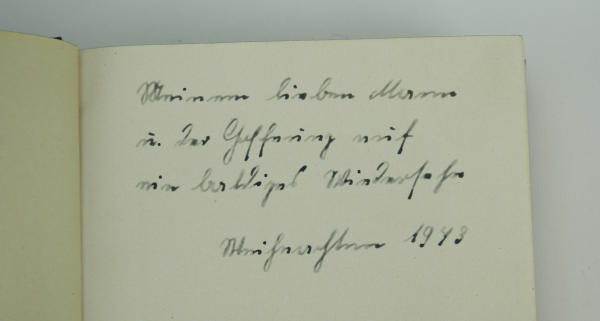 Meinem lieben Mann
u. der Hoffnung auf
ein baldiges Wiedersehn
Weihnachten 1943